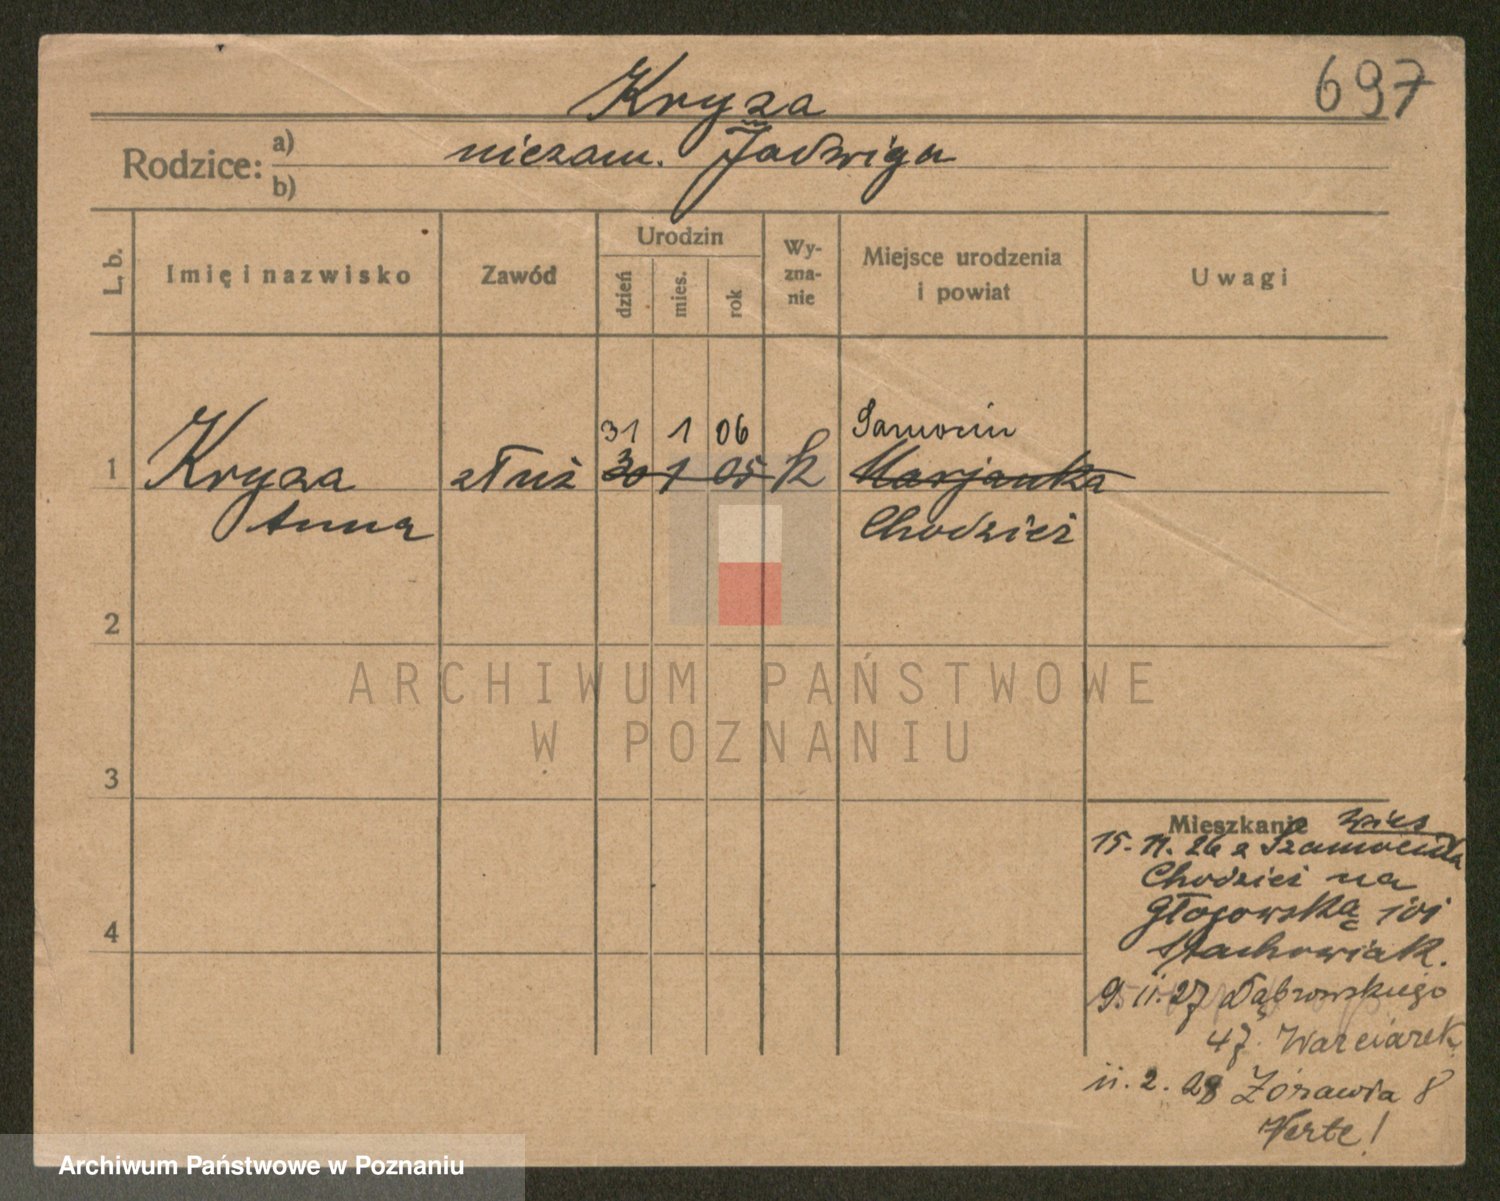 697
Kryza
Rodzice: a) niezam. Jadwiga
b)
L. b. Imię i nazwisko Zawód Urodzin dzień mies. rok Wy-zna-nie Miejsce urodzenia i powiat Uwagi
31 1 06 Samocin
1 Kryza służ 30 1 05 k Marjanka
Anna Chodzież
2
ARCHIWUM PAŃSTWOWE
W POZNANIU
3
Mieszkanie wieś
15. 11. 26 z Szamocina
Chodzież na
Głogowską 101
4 Stachowiak.
9. 11. 27 Dąbrowskiego
47. Warciarek
11. 2. 28 Żórawia 8
Verte!
Archiwum Państwowe w Poznaniu